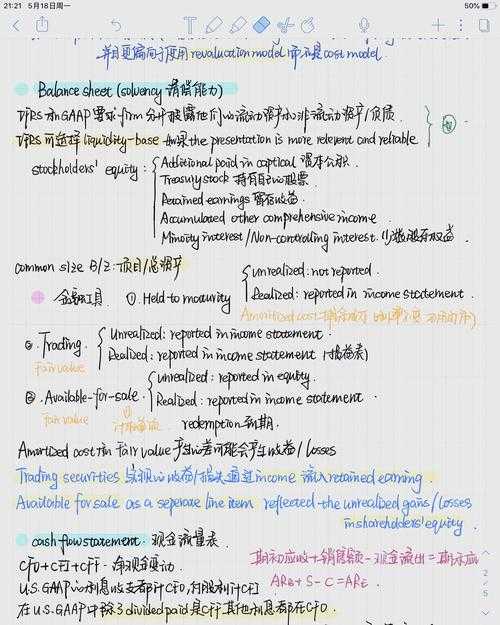 21:21 5月18日周一
50%
并且更偏向于使用 revaluation model 而不是 cost model.
Balance sheet (solvency 清偿能力)
IFRS 和 GAAP 要求 firm 分开披露他们的流动资产和非流动资产/负债
IFRS 可选择 liquidity-base 如果 the presentation is more relevant and reliable
stockholders' equity:
Additional paid in captical 资本公积
Treasury stock 持有自己的股票
Retained earnings 留存收益
Accumulated other comprehensive income
Minority interest / Non-controlling interest 少数股东权益
common size B/S: 项目/总资产
金融工具 ① Held to maturity
unrealized: not reported.
Realized: reported in income statement
Amortized cost
②. Trading
Fair value
Unrealized: reported in income statement
Realized: reported in income statement (损益表)
③. Available-for-sale
Fair value
unrealized: reported in equity.
Realized: reported in income statement
redemption 到期.
Amortized cost 和 Fair value 产生的差可能会产生收益/losses
Trading securities 未实现的收益/损失通过 income 流入 retained earning.
Available for sale as a seperate line item reflected the unrealized gains/losses
in shareholders' equity
cash flow statement 现金流量表.
CFO+CFI+CFF = 净现金变动
期初应收+销售额-现金流出=期末应
ARB+S-C=ARE
U.S.GAAP 的利息收支都计CFO, 付股利计CFF
在U.S.GAAP中除了 divided paid 是CFF 其他利息都在CFO.
2
5